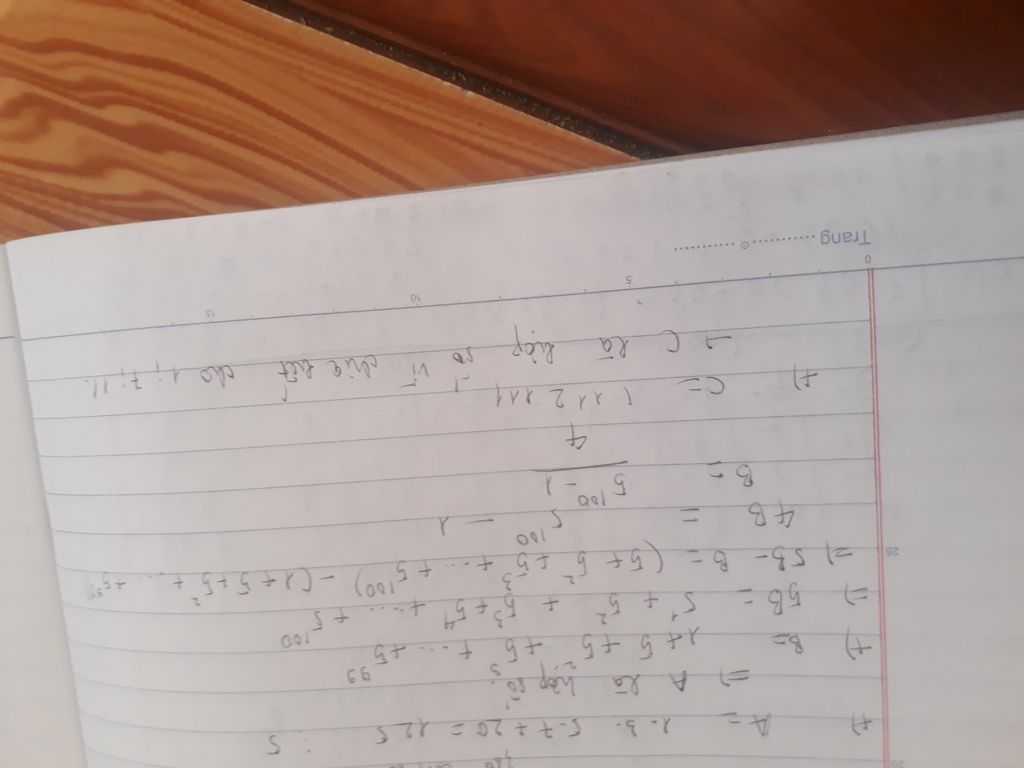 +) A = 1.3.5.7 + 20 = 125 ⋮ 5
=> A là hợp số.
+) B = 1 + 5 + 5² + 5³ + .... + 5⁹⁹
=> 5B = 5¹ + 5² + 5³ + 5⁴ + .... + 5¹⁰⁰
=> 5B - B = (5 + 5² + 5³ + .... + 5¹⁰⁰) - (1 + 5 + 5² + ... + 5⁹⁹)
25
4B = 5¹⁰⁰ - 1
B = 5¹⁰⁰ - 1
4
+) C = 112111
→ C là hợp số vì chia hết cho 1; 7; 11.
0 5 10 15
Trang